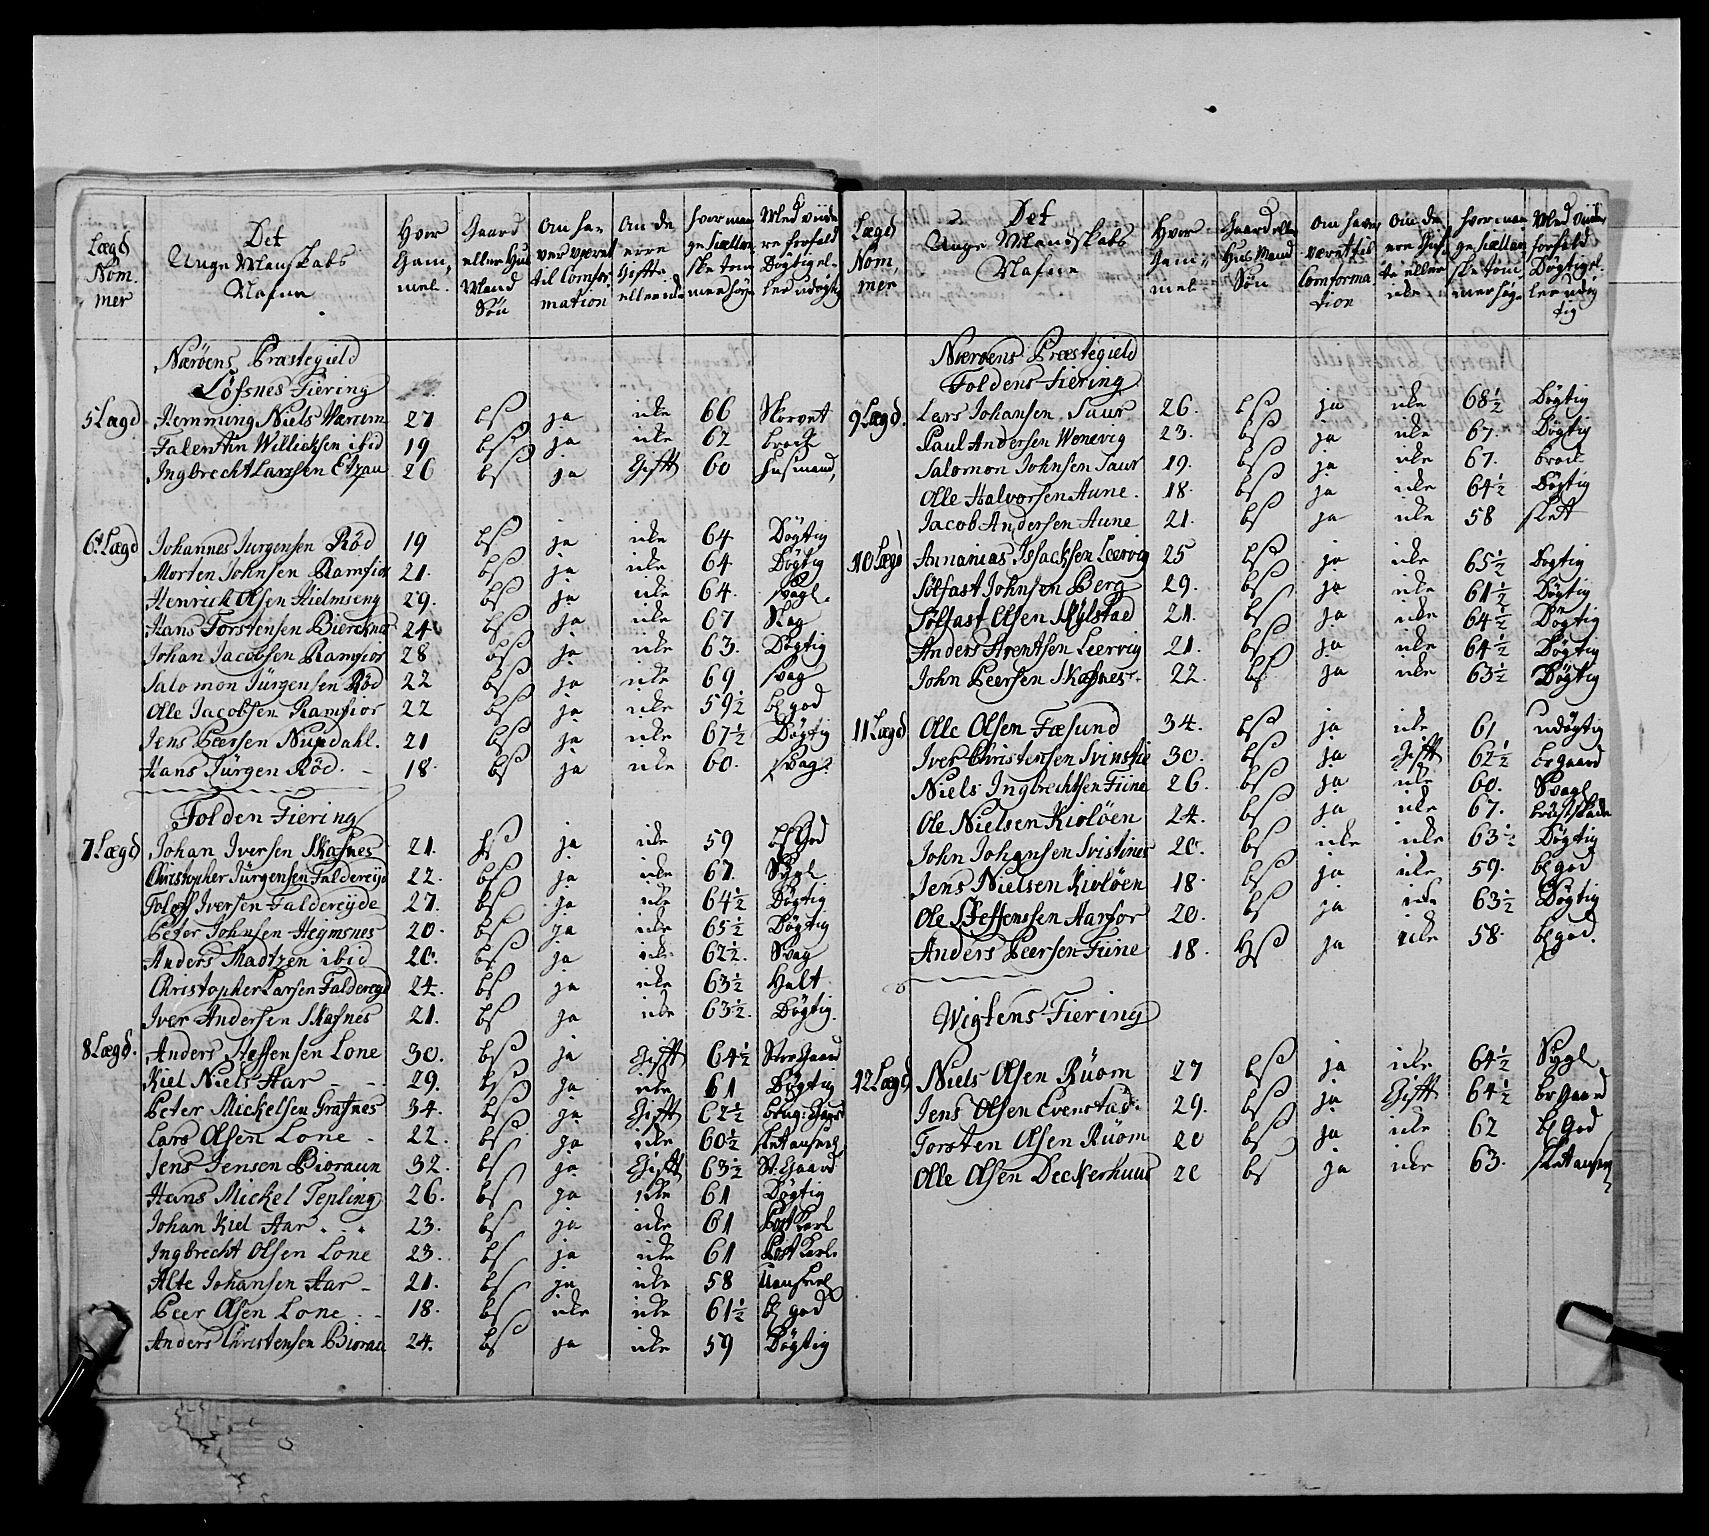 Lægd Nom mer | Det Unge Manskabs Nafne | Hvor Gam, mel. | Gaard eller Hus Mand Søn | Om ha ver været til Comfor mation | Om de erre Gifte eller | hvor man ge Siællan ske tom mer høye | Med viide re forhold Døgtig el
Nærøens Præstegield
Løfsnes Fiering
5 Lægd Hemmung Niels Wærrem 27 bs ja ikke 66 Skorvet
Falentin Willicksen ibid 19 bs ja ikke 62 brock
Ingbrecht Larssen Etzau 26 bs ja Gifft 60 husmand,
6t Lægd Johannes Jurgensen Röd 19 bs ja ikke 64 Døgtig
Morten Johnsen Ramfior 21. bs ja ikke 64 Døgtig
Henrick Olsen Hielmseng 29. bs ja ikke 64. svagl.
Hans Torstensen Biercknes 24 bs ja ikke 67
Johan Jacobsen Ramfior 28 bs ja ikke 63. Døgtig
Salomon Jürgensen Röd 22 bs ja ikke 69 svag
Olle Jacobsen Ramfior 22 bs ja ikke 59½ bl god
Jens Peersen Nundahl. 21 bs ja ikke 67½ Døgtig
Hans Jürgen Röd. 18. bs ja ikke 60. svag
Folden Fiering
7 Lægd Johan Iversen Skafnes 21. ja ikke 59
Christopher Jürgensen Faldereyd 22. bs ja ikke 61. Sygl
Toloff Iversen Faldereyde 27. bs ja ikke 64½ Døgtig
Peter Johnsen Heimsnes 20. bs ja ikke 65½ Døgtig
Anders Madtzen ibid 20. bs ja ikke 62½. Svag
Christopher Larsen Faldereyd 24. bs ja ikke 63½ Halt
Iver Andersen Skafnes 21. bs ja ikke 63½. Døgtig.
8 Lægd. Anders Steffensen Lone 30. bs ja Gifft 64½ Stor Gaard
Kiel Niels Aar 29. bs ja ikke 61 Døgtig
Peter Mickelsen Grafnes 34. bs ja Gifft 62½
Lars Olsen Lone 22. bs ja ikke 60½
Jens Jensen Bioraun 32. bs ja Gifft 63½ St: Gaard
Hans Mickel Tepling 26. bs ja ikke 61 Døgtig
Johan Kiel Aar 23. bs ja ikke 61 Post Karl
Ingbrecht Olsen Lone 23. bs ja ikke 61 Post Karl.
Alte Johansen Aar 21. bs ja ikke 58
Peer Olsen Lone 18. bs ikke ikke 61½ bl god
Anders Christensen Biorau 24. bs ja ikke 59 Døgtig
Lægd Nom, mer | Det Unge Mandskabs Nafne | Hvor Gam, mel | Gaard eller Hus Mand Søn | Om haver været til Comforma tion | Om de ere Gif te eller ikke | hvor man ge Siællan ske tom mer høye | Med viider forhold Døgtig el ler udøg tig
Nærøens Præstegield
Foldens Fiering
9 Lægd. Lars Johansen Saur 26. bs ja ikke 68½ Døgtig
Paul Andersen Wonevig 23. bs ja ikke 67. Døgtig
Salomon Johnsen Saur 19. bs ja ikke 67. brock
Olle Halvorsen Aune. 18. bs ja ikke 64½ Døgtig
Jacob Andersen Aune 21. bs ja ikke 58 slet
10 Lægd Annanias Issachsen Leervig 25 bs ja ikke 65½ Døgtig
Sølfast Johnsen Berg 29. bs ja ikke 61½ Døgtig
Sølfast Olsen Skylstad 21. bs ja ikke 64½ Døgtig
Anders Arentsen Leervig 21. bs ja ikke 64½ Døgtig
John Peersen Skafnes 22. bs ja ikke 63½ Døgtig
11 Lægd Olle Olsen Fæsund 34. bs ja ikke 61 udøgtig
Iver Christensen Svinstie 30. bs ja Gifft 62½ br Gaard
Niels Ingbrechtsen Fiine 26. bs ja ikke 60. Svagl
Ole Nielsen Kioløen 24. bs ja ikke 67. brüstskade
John Johansen Svistines 20. bs ikke ikke 63½ Døgtig
Jens Nielsen Kioløen 18. bs ja ikke 59. bl god
Ole Steffenssen Aarfor 20. bs ja ikke 63½ Døgtig
Anders Peersen Fiine 18. Hs ja ikke 58. bl god.
Wigtens Fiering
12 Lægd Niels Olsen Rüom 27 bs ja ikke 64½ Sygl
Jens Olsen Evenstad. 29. bs ja Gifft 64½ br Gaard
Torsten Olsen Rüom 20 bs ja ikke 62 bl God
Olle Olsen Deckerhuus 20 bs ja ikke 63.